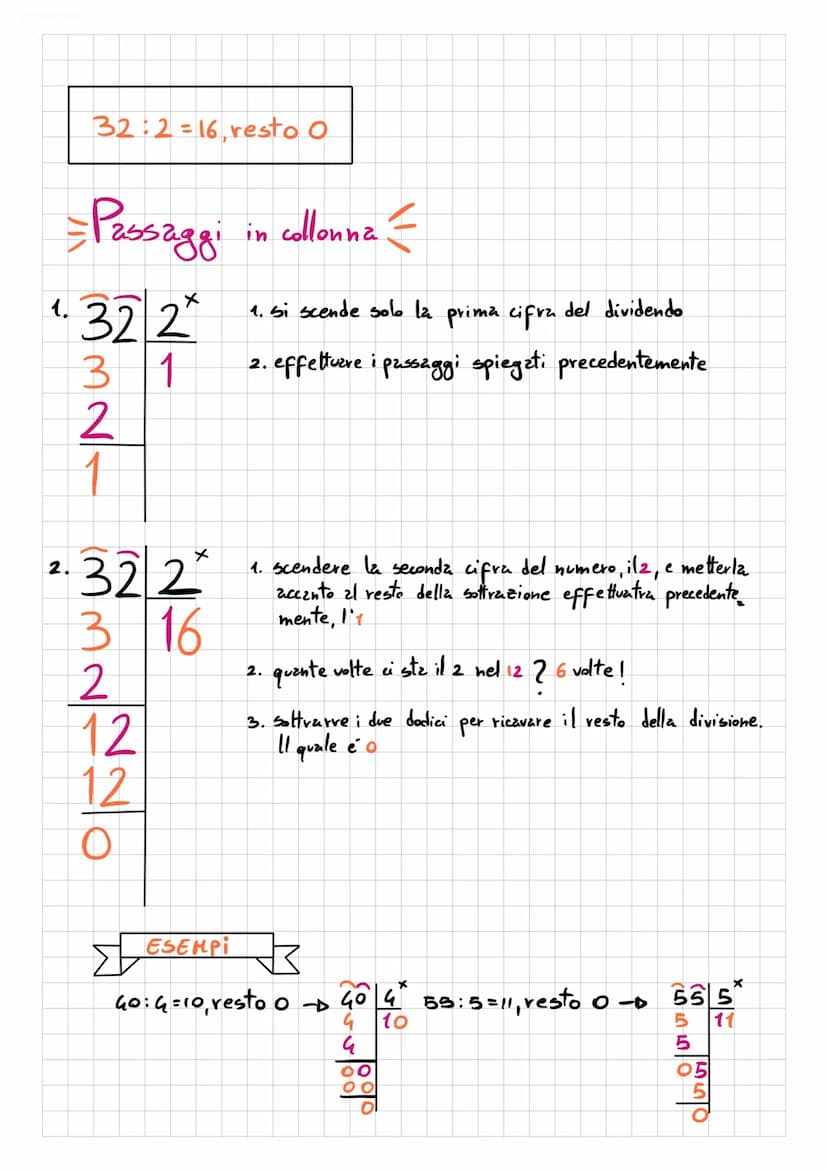 32:2=16, resto 0
Passaggi in collonna
1. 32 2x
3 1
2
1
1. si scende solo la prima cifra del dividendo
2. effettuare i passaggi spiegati precedentemente
2. 32 2x
3 16
2
12
12
0
1. scendere la seconda cifra del numero, il 2, e metterla
accanto al resto della sottrazione effettuatra precedente_
mente, l'1
2. quante volte ci sta il 2 nel 12? 6 volte!
3. sottrarre i due dodici per ricavare il resto della divisione.
Il quale é 0
ESEMPi
40:4=10, resto 0 → 40 4x
4 10
4
00
00
0
55:5=11, resto 0 → 55 5x
5 11
5
05
5
0